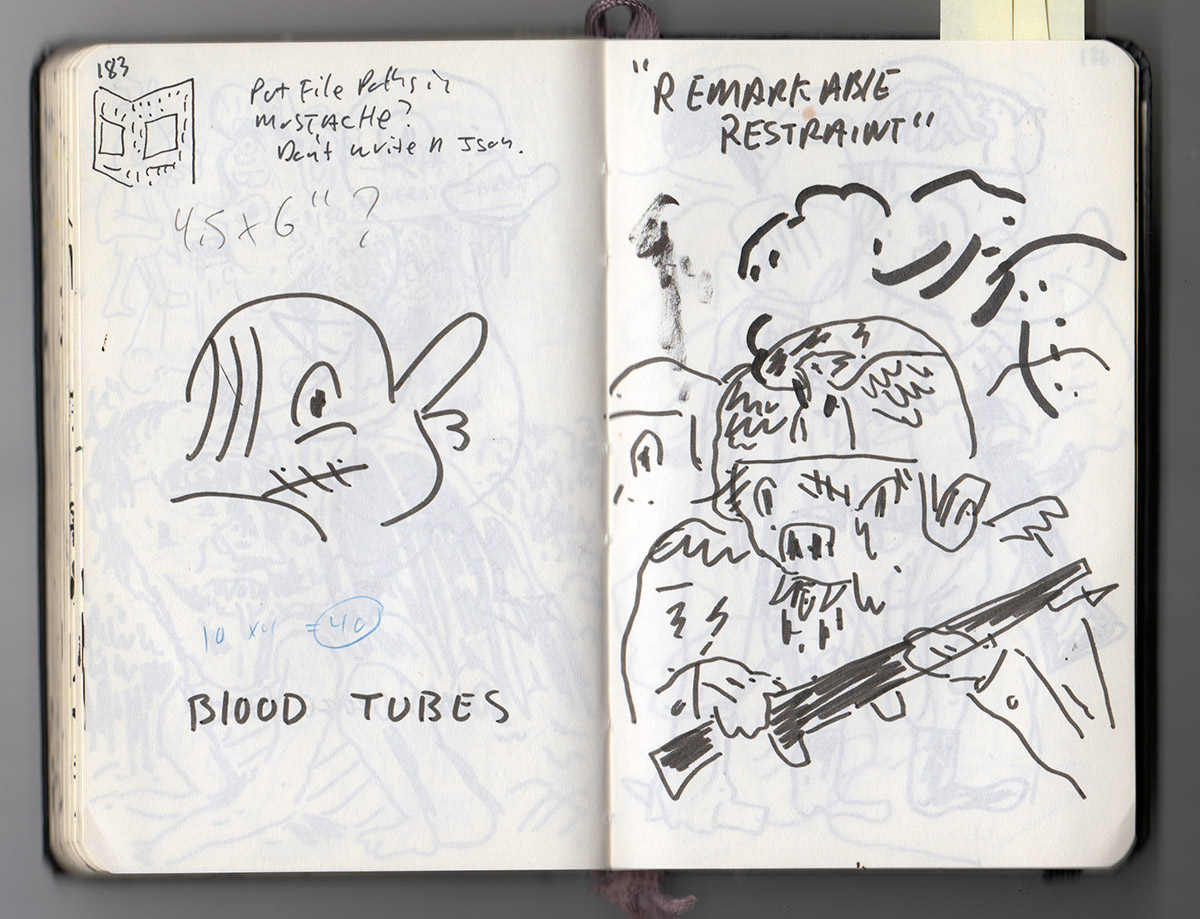 183
Put File Paths in
MUSTACHE?
Don't write n Json.
4.5 x 6" ?
10 x4 = 40
BLOOD TUBES
"REMARKABLE
RESTRAINT"